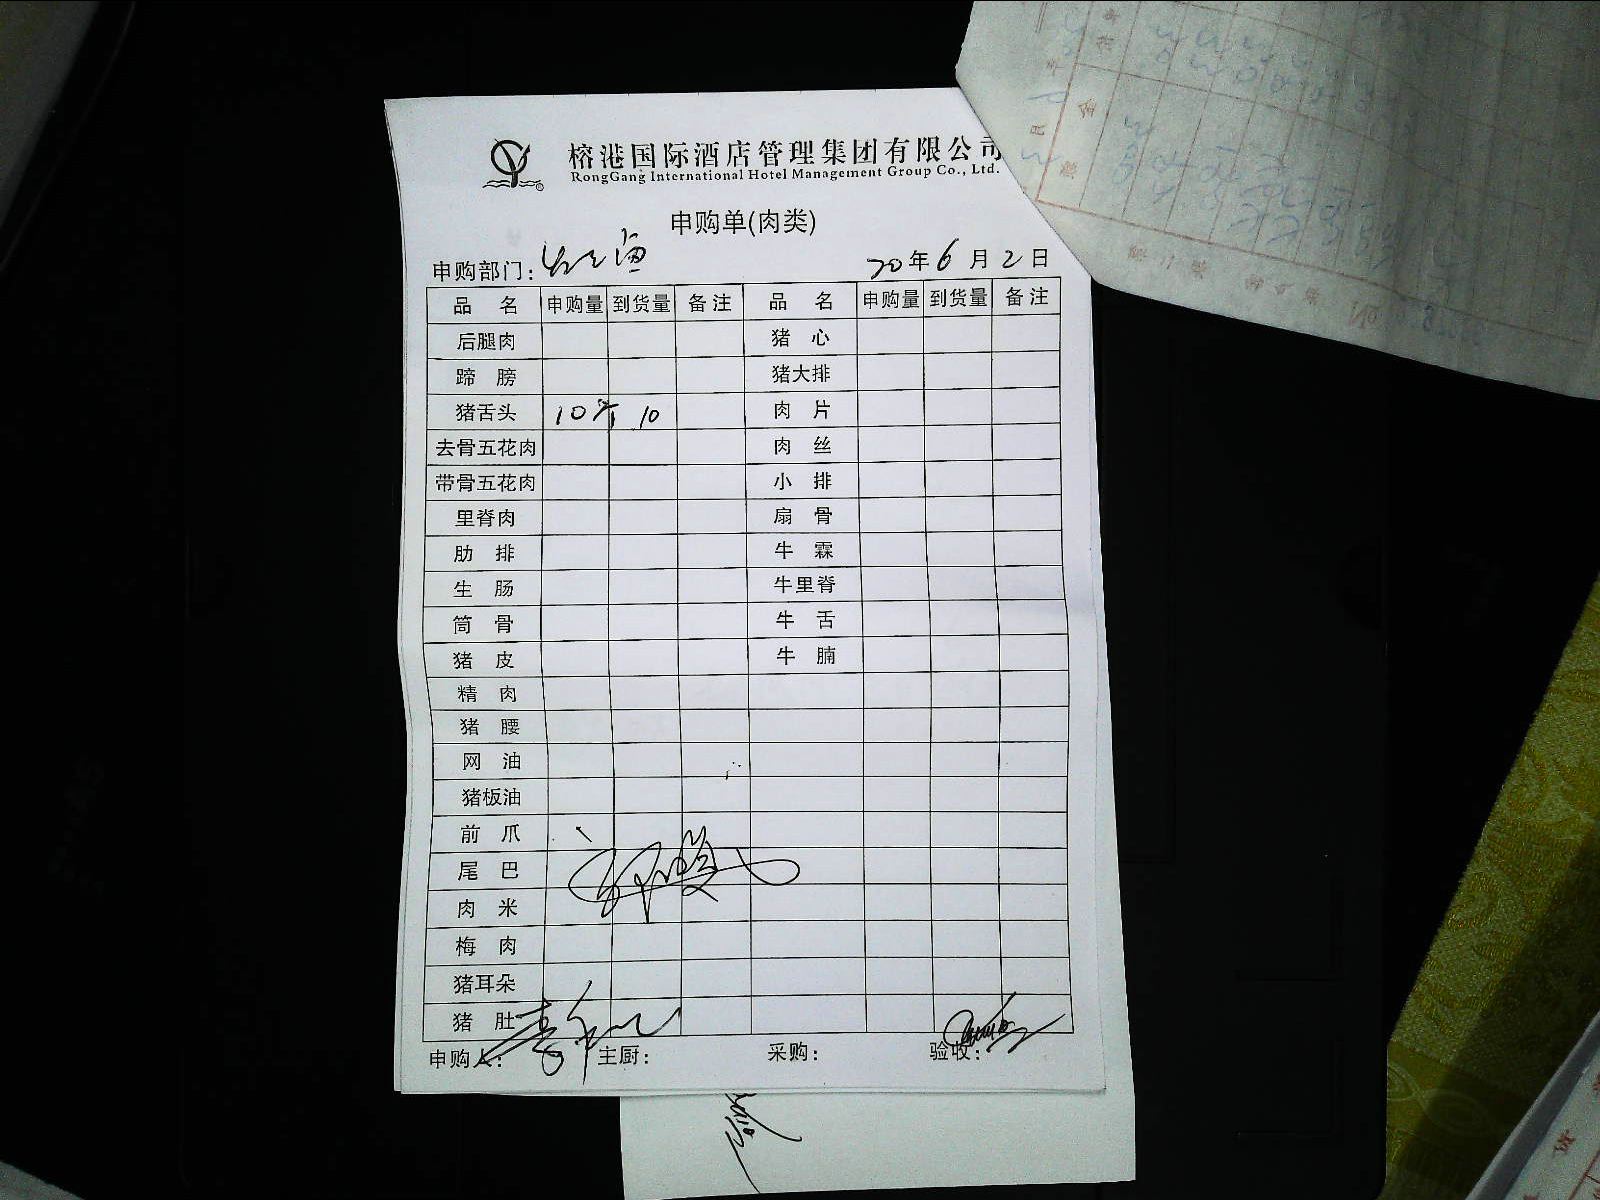 榕港国际酒店管理集团有限公司
RongGang International Hotel Management Group Co., Ltd.
申购单(肉类)
申购部门: 20年6月2日
品 名 申购量 到货量 备注 品 名 申购量 到货量 备注
后腿肉 猪 心
蹄 膀 猪大排
猪舌头 10斤 10 肉 片
去骨五花肉 肉 丝
带骨五花肉 小 排
里脊肉 扇 骨
肋 排 牛 霖
生 肠 牛里脊
筒 骨 牛 舌
猪 皮 牛 腩
精 肉
猪 腰
网 油
猪板油
前 爪
尾 巴
肉 米
梅 肉
猪耳朵
猪 肚
申购人: 主厨: 采购: 验收: